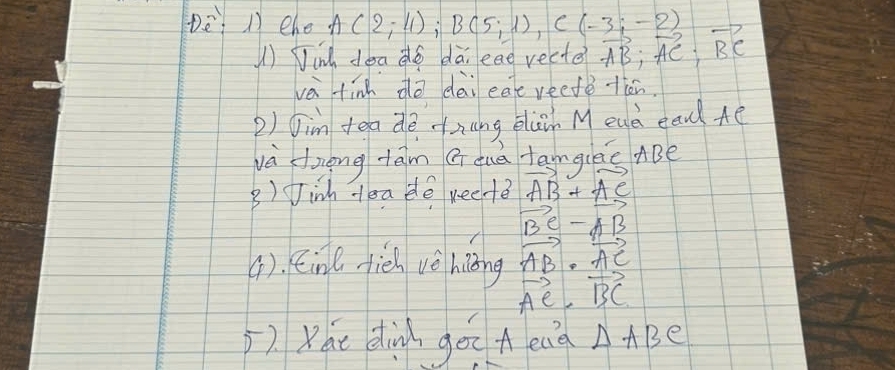 Đề: 1) Cho A(2; 4); B(5; 1), C(-3; -2)
1) Tính tọa độ dài các vectơ AB; AC; BC
và tính độ dài các vectơ trên.
2) Tìm tọa độ trung điểm M của cạnh AC
và trọng tâm G của tam giác ABC
3) Tính tọa độ vectơ AB + AC
BC - AB
4). Tính tích vô hướng AB . AC
AC . BC
5). Xác định góc A của Δ ABC